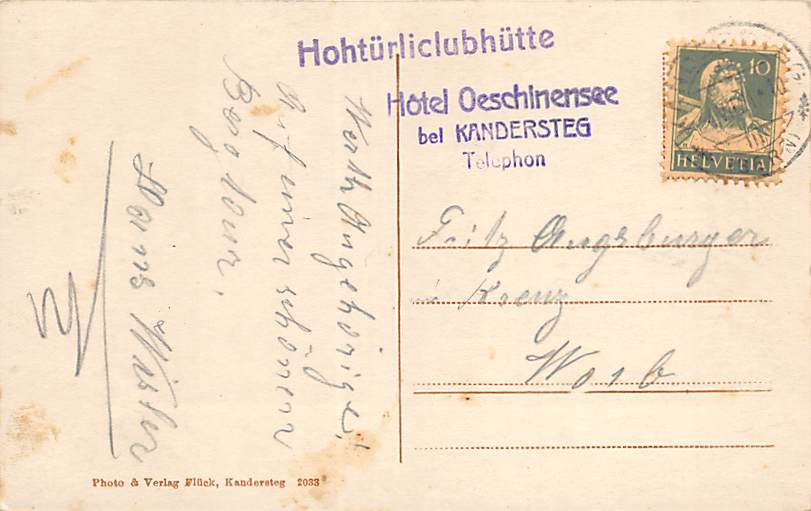 Hohtürliclubhütte
Hôtel Oeschinensee
bei KANDERSTEG
Telephon
10
HELVETIA
Werte Angehörige!
Auf einer schönen
Berg Tour,
Hans
Fritz Augsburger
Kreuz
Worb
Photo & Verlag Flück, Kandersteg 2033